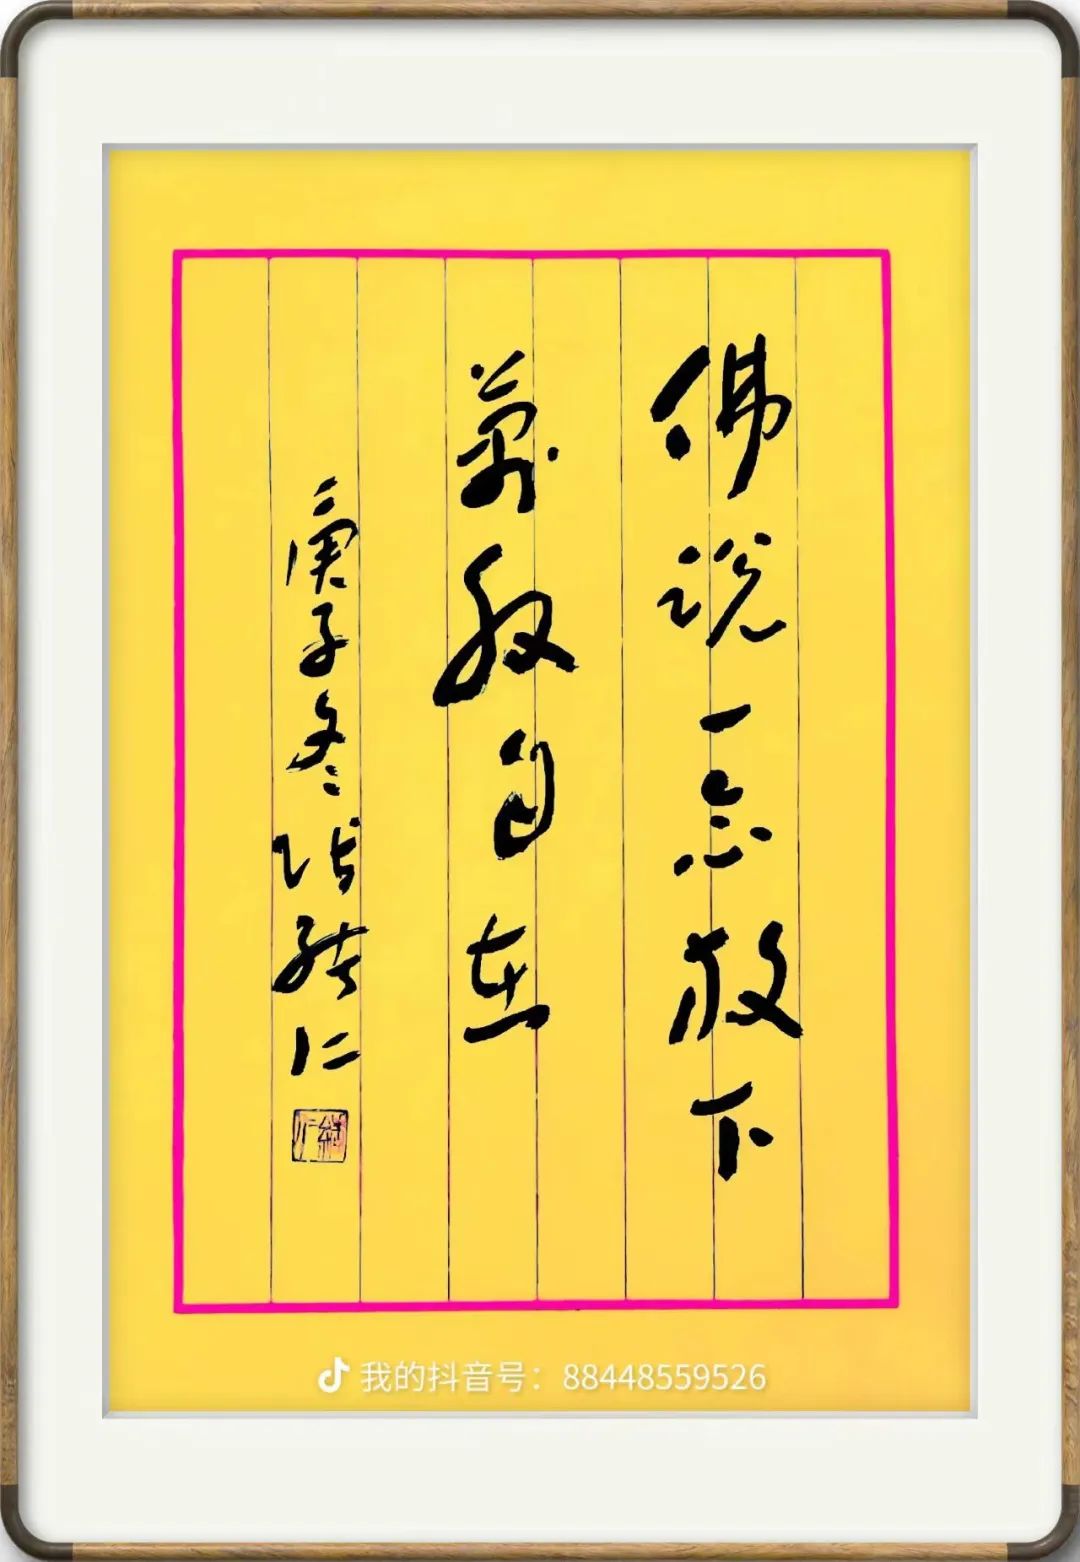 佛说一念放下
萬般自在
庚子冬 仁
我的抖音号：88448559526